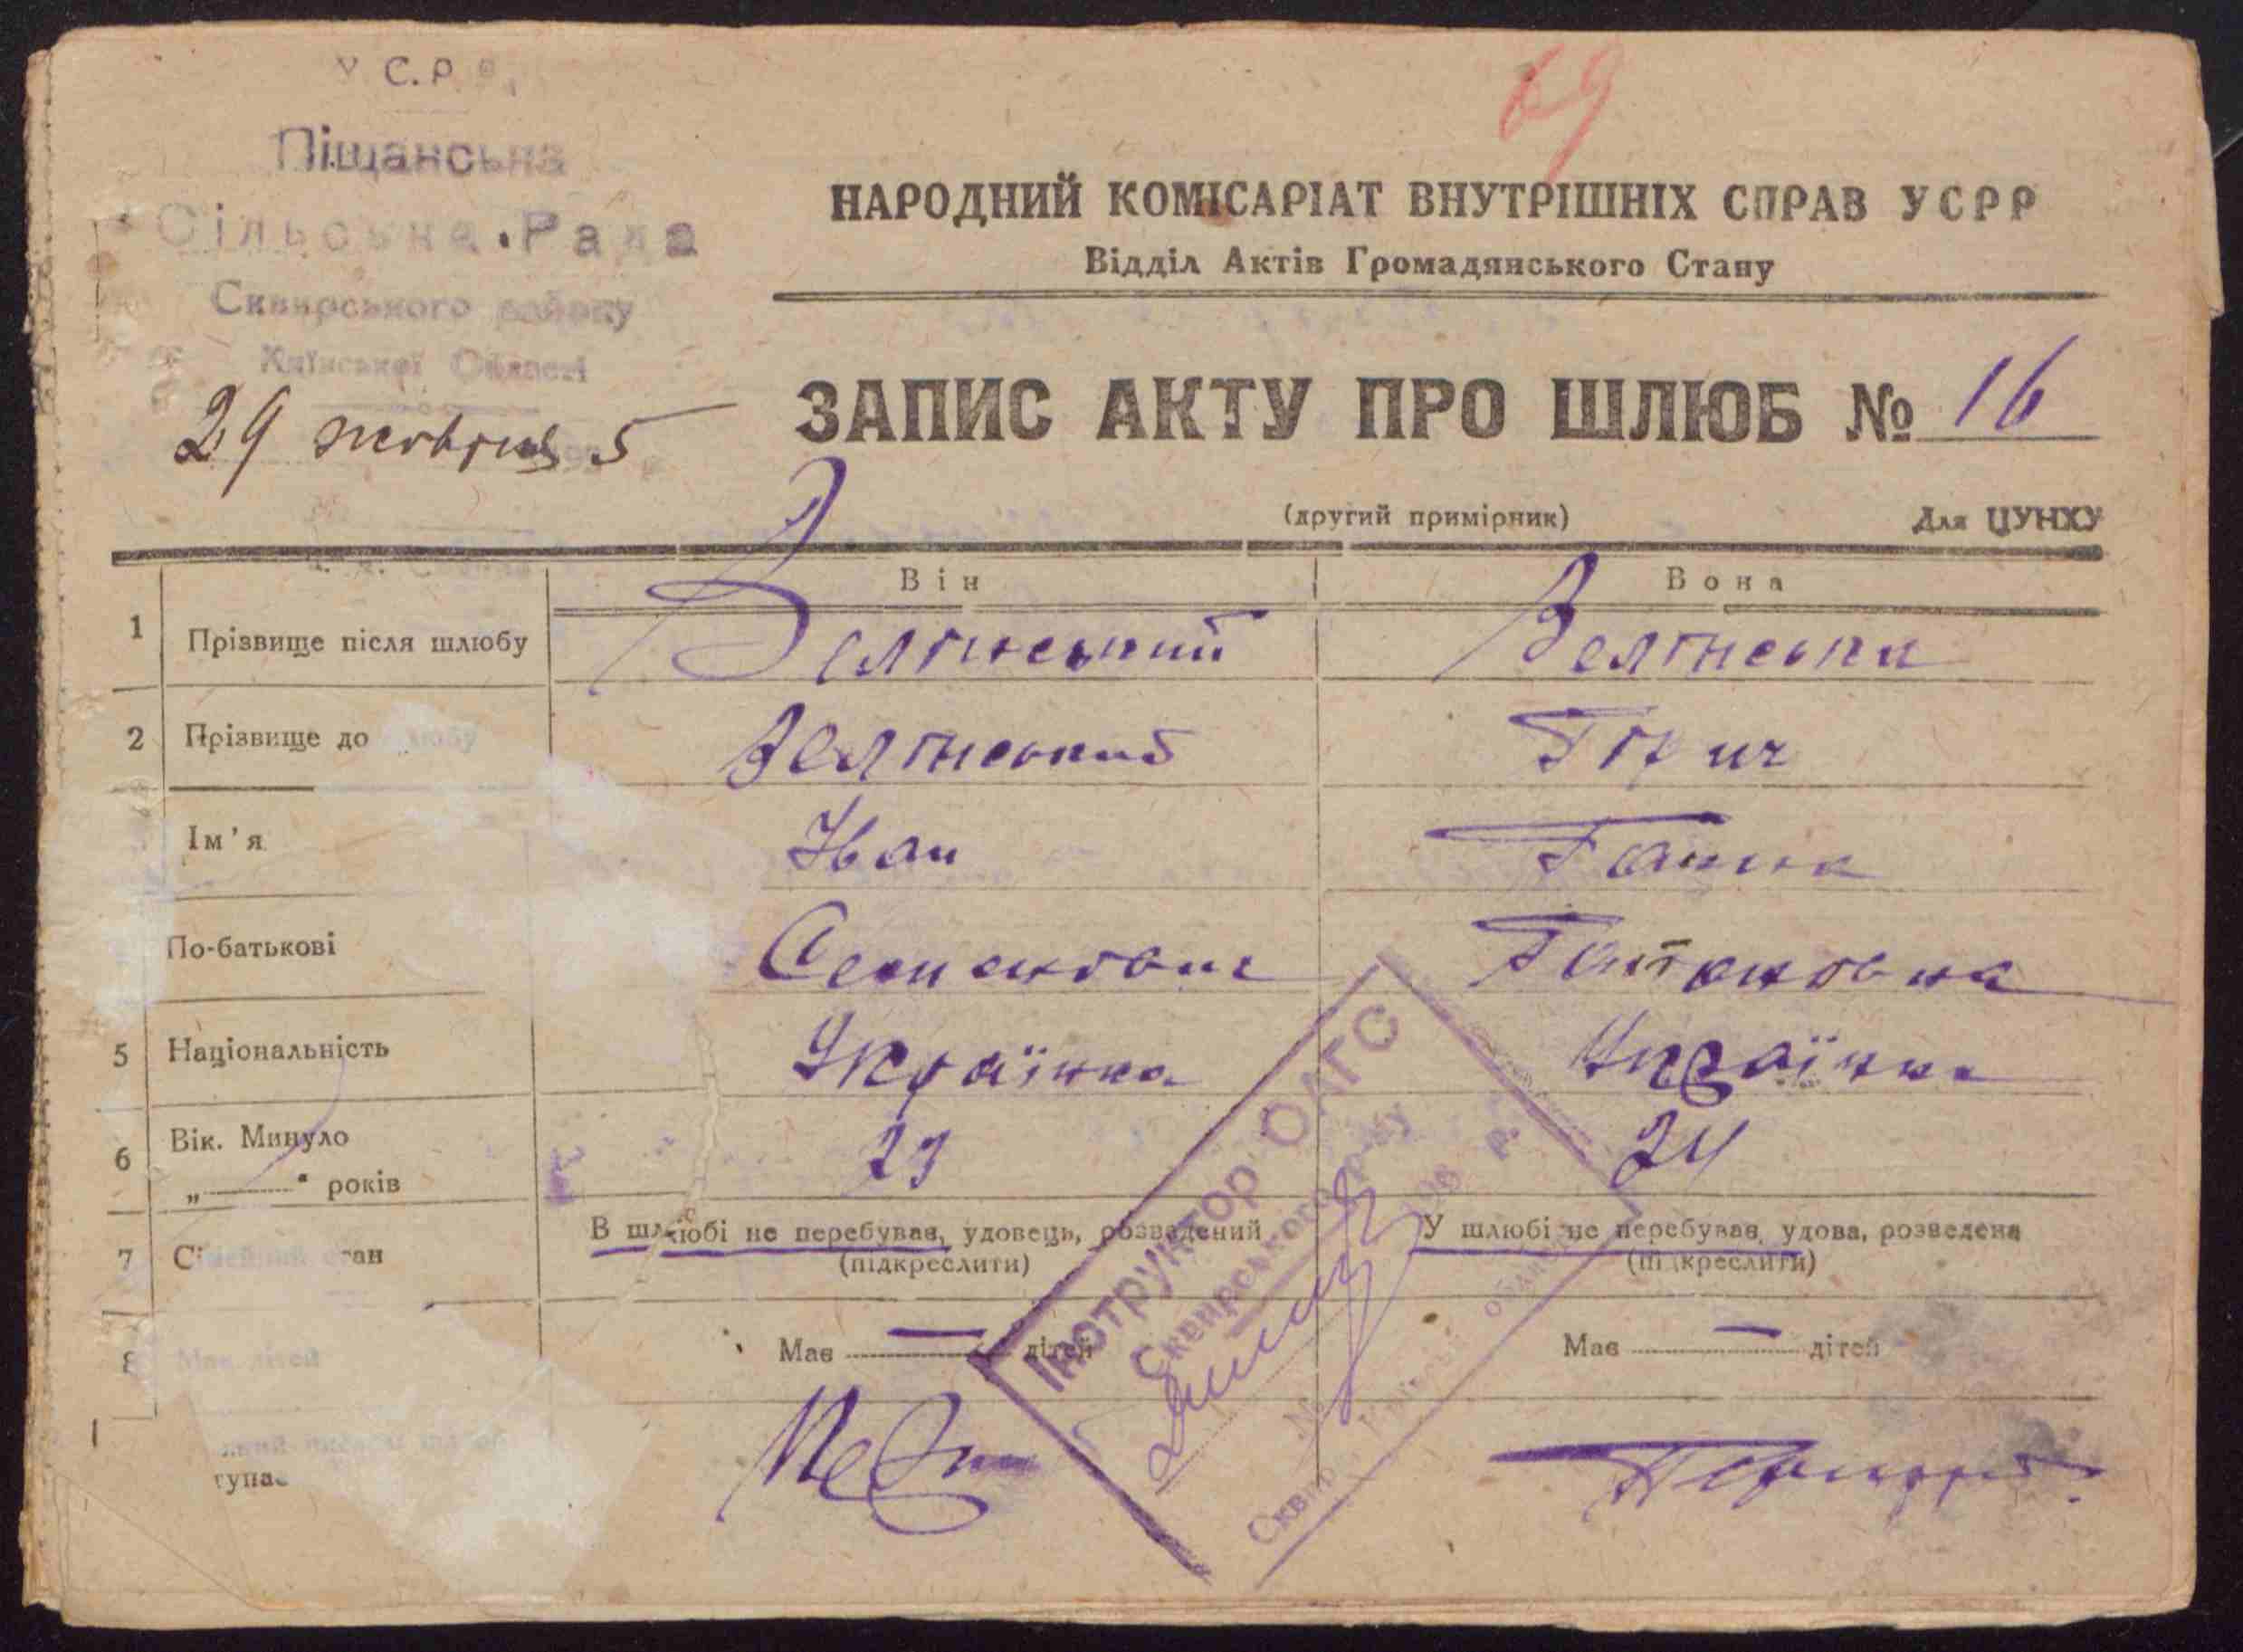 У С.Р.Р.
69
Піщанська
Сільська Рада
Сквирського району
Київської Області
29 жовтня 5
НАРОДНИЙ КОМІСАРІАТ ВНУТРІШНІХ СПРАВ УСРР
Відділ Актів Громадянського Стану
ЗАПИС АКТУ ПРО ШЛЮБ № 16
(другий примірник) Для ЦУНХУ
Він Вона
1 Прізвище після шлюбу Зелінський Зелінська
2 Прізвище до шлюбу Зелінський
Ім'я Іван Ганна
По-батькові Семенович
5 Національність Українка Українка
6 Вік. Минуло 23 24
„——“ років
7 Сімейний стан В шлюбі не перебував, удовець, розведений У шлюбі не перебував, удова, розведена
(підкреслити) (підкреслити)
8 Має дітей Має — дітей Має — дітей
який шлюб
тупає Перший
Інструктор ОАГС
Сквирського р-ну
№
193 р.